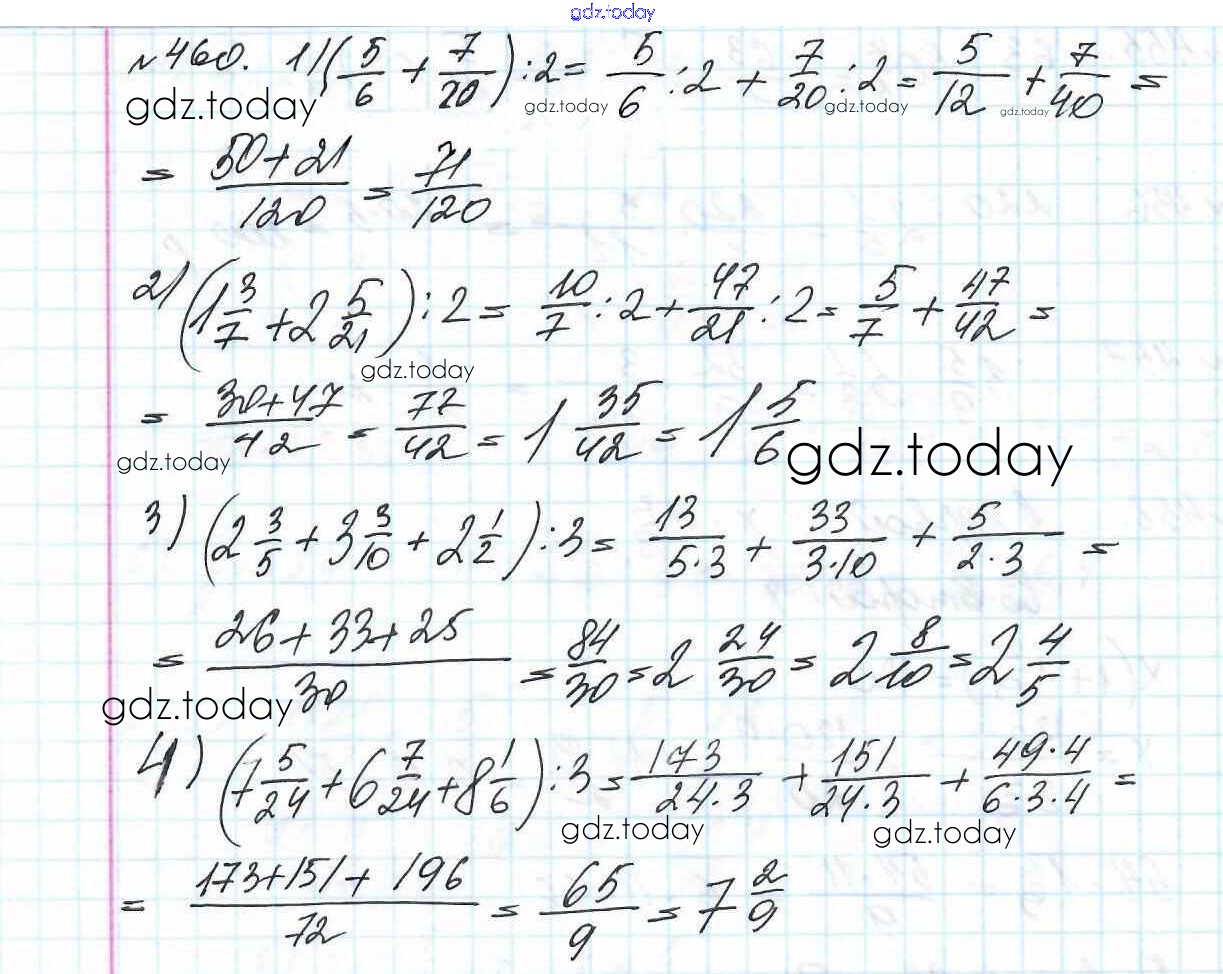 gdz.today
№460. 1) (5/6 + 7/20) : 2 = 5/6 : 2 + 7/20 : 2 = 5/12 + 7/40 =
gdz.today gdz.today gdz.today gdz.today
= 50+21/120 = 71/120
2) (1 3/7 + 2 5/21) : 2 = 10/7 : 2 + 47/21 : 2 = 5/7 + 47/42 =
gdz.today
= 30+47/42 = 77/42 = 1 35/42 = 1 5/6
gdz.today gdz.today
3) (2 3/5 + 3 3/10 + 2 1/2) : 3 = 13/5·3 + 33/3·10 + 5/2·3 =
= 26+33+25/30 = 84/30 = 2 24/30 = 2 8/10 = 2 4/5
gdz.today
4) (7 5/24 + 6 7/24 + 8 1/6) : 3 = 173/24·3 + 151/24·3 + 49·4/6·3·4 =
gdz.today gdz.today
= 173+151+196/72 = 65/9 = 7 2/9